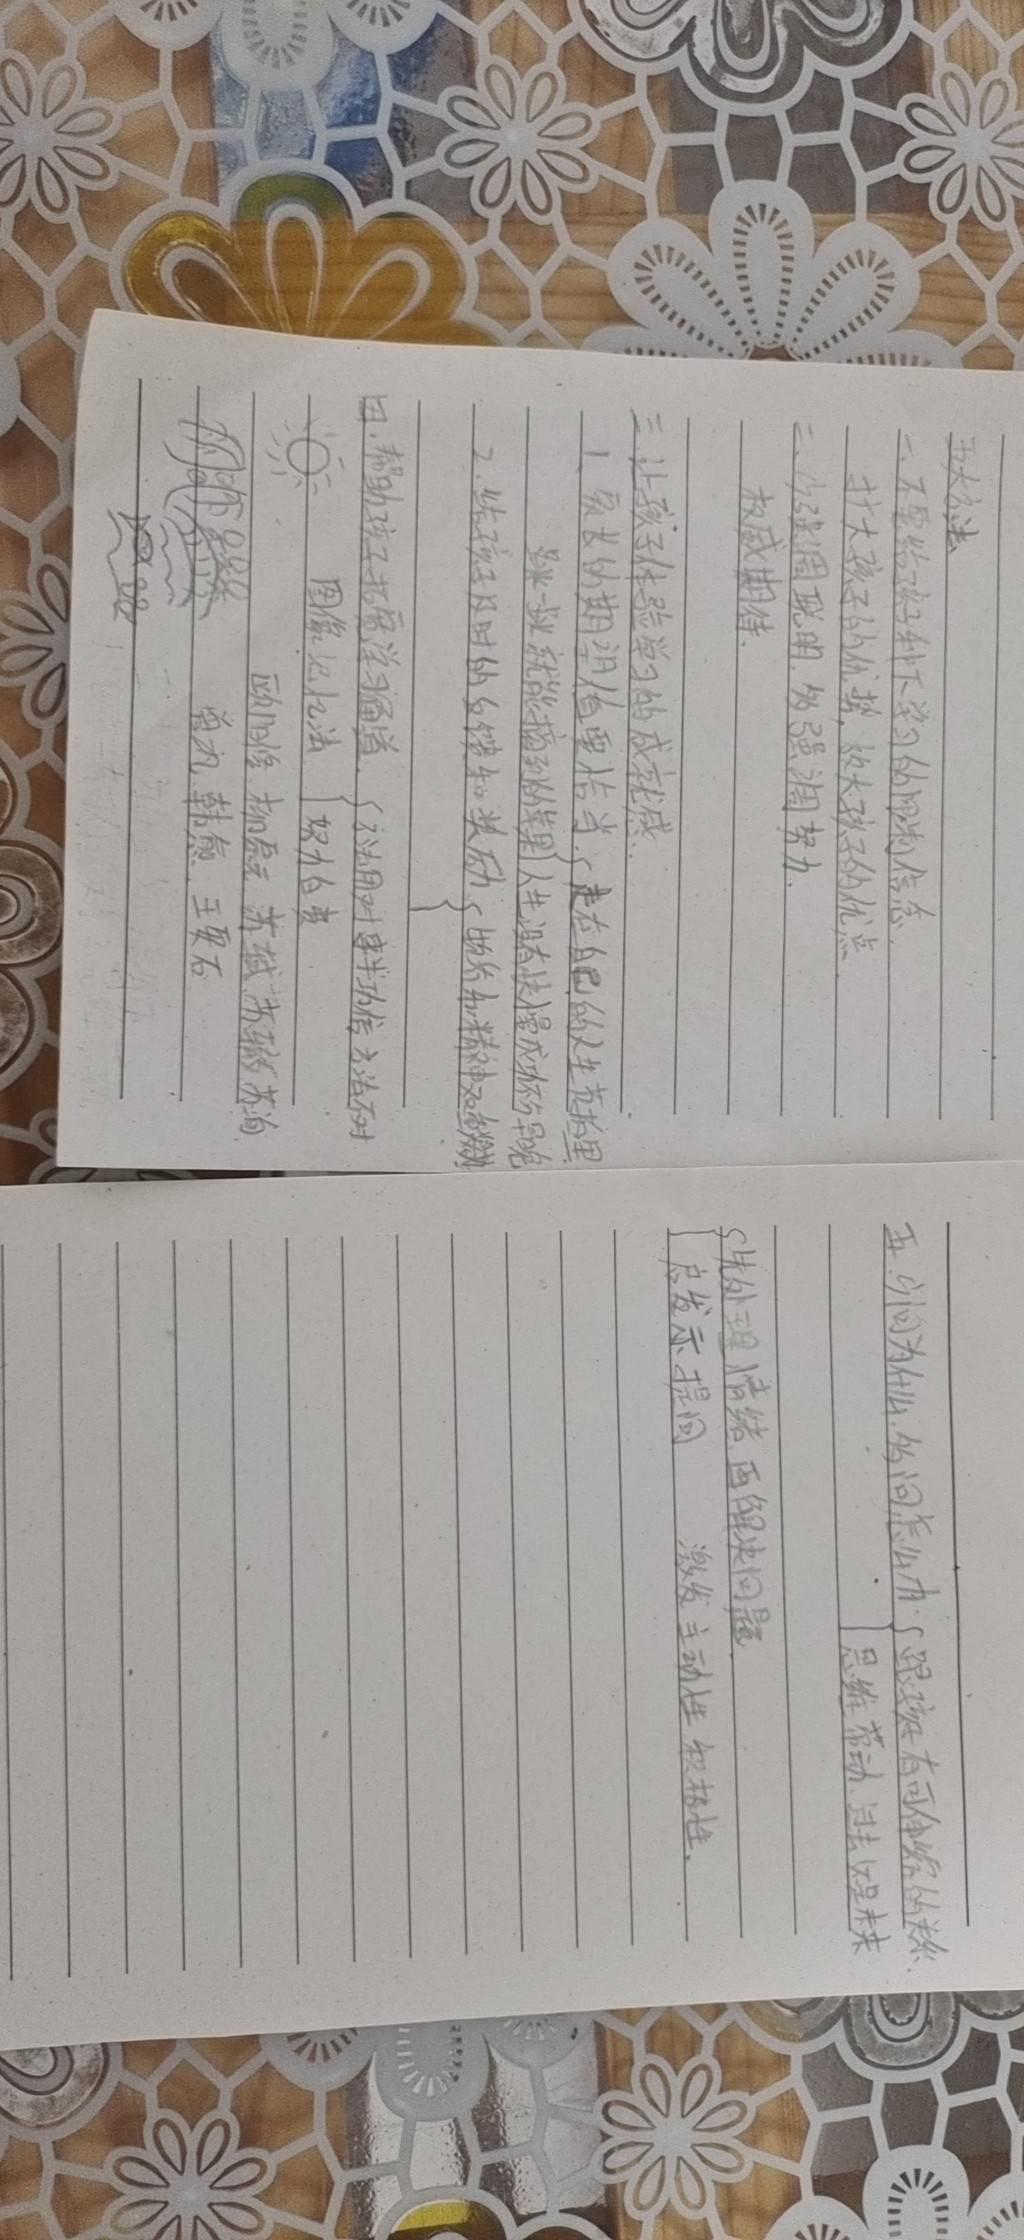 五大方法
一、不要给孩子种下学习的限制信念.
扩大孩子的优势,放大孩子的优点
二、少强调聪明,多强调努力.
权威期待.
三.让孩子体验学习的成就感.
1、家长的期望值要恰当.{走在自己的人生节拍里
跳一跳就能摘到的苹果 人生没有快慢成功不分早晚
2.给孩子及时的反馈和奖励{物质和精神双
四.帮助孩子拓展学习通道.{方法用对事半功倍 方法不对
图像记忆法 努力白费
欧阳修 柳宗元 苏轼 苏辙 苏洵
曾巩 韩愈 王安石
五.少问为什么,多问怎么办.{跟孩子有可体验的关系.
思维带动,过去还是未来
{先处理情绪,再解决问题.
启发示提问 激发主动性 积极性.